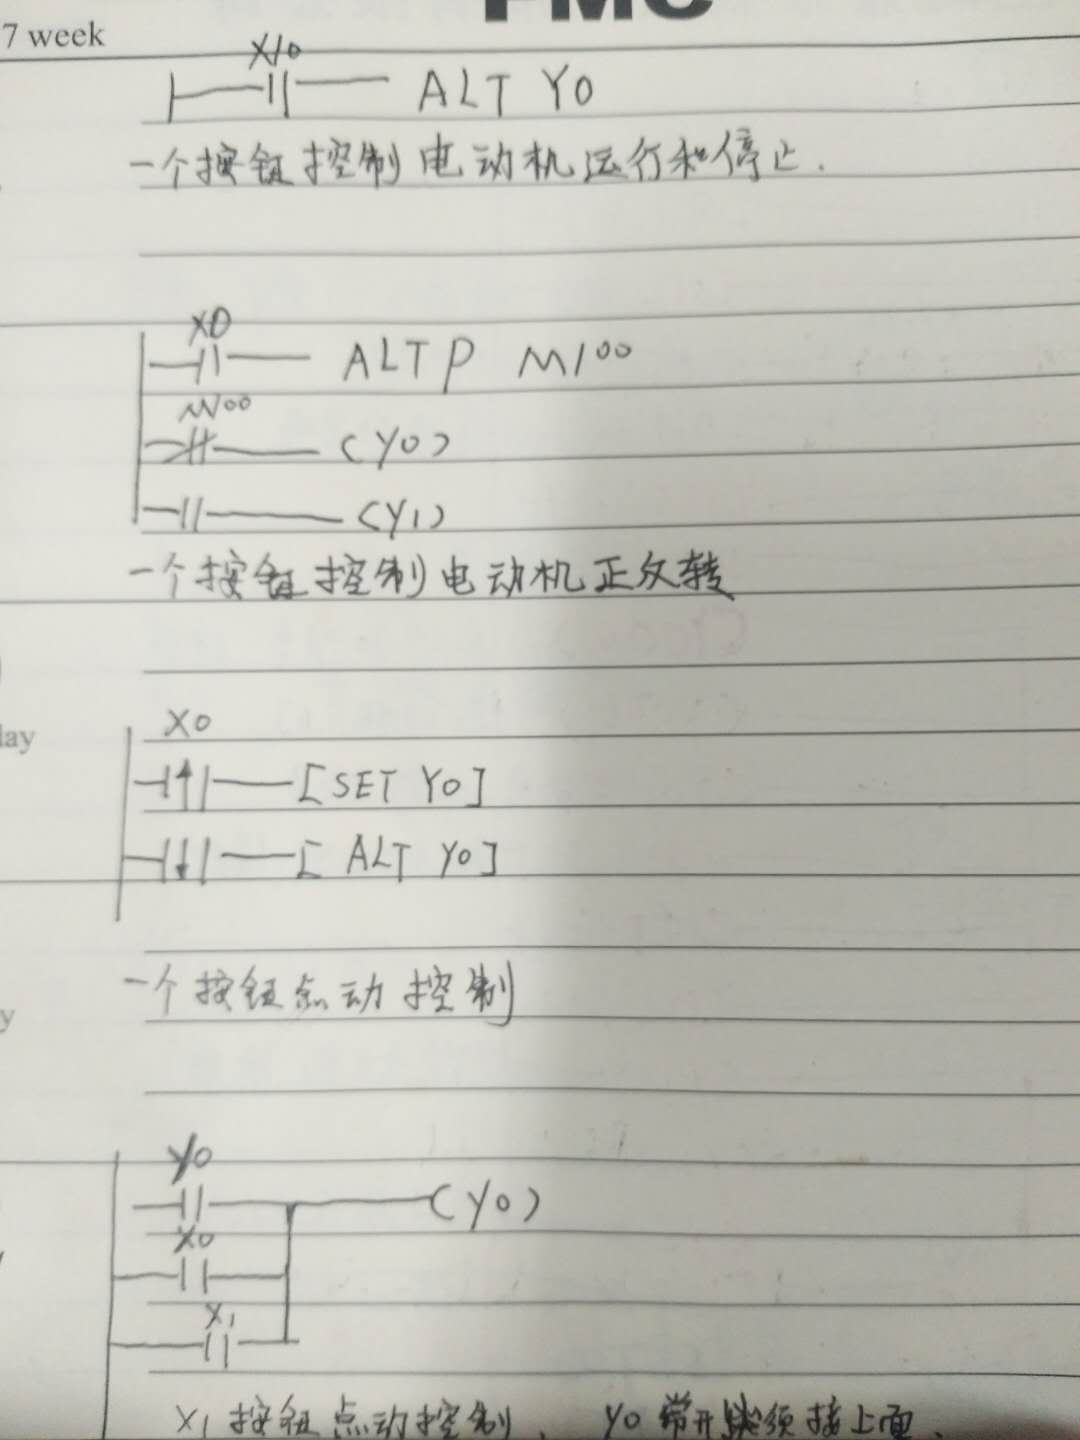 PMC
7 week
X10
ALT Y0
一个按钮控制电动机运行和停止.
X0
ALTP M100
M100
(Y0)
(Y1)
一个按钮控制电动机正反转
lay
X0
[SET Y0]
[ ALT Y0]
一个按钮点动控制
y
Y0
(Y0)
X0
X1
X1按钮点动控制. Y0常开必须接上面.